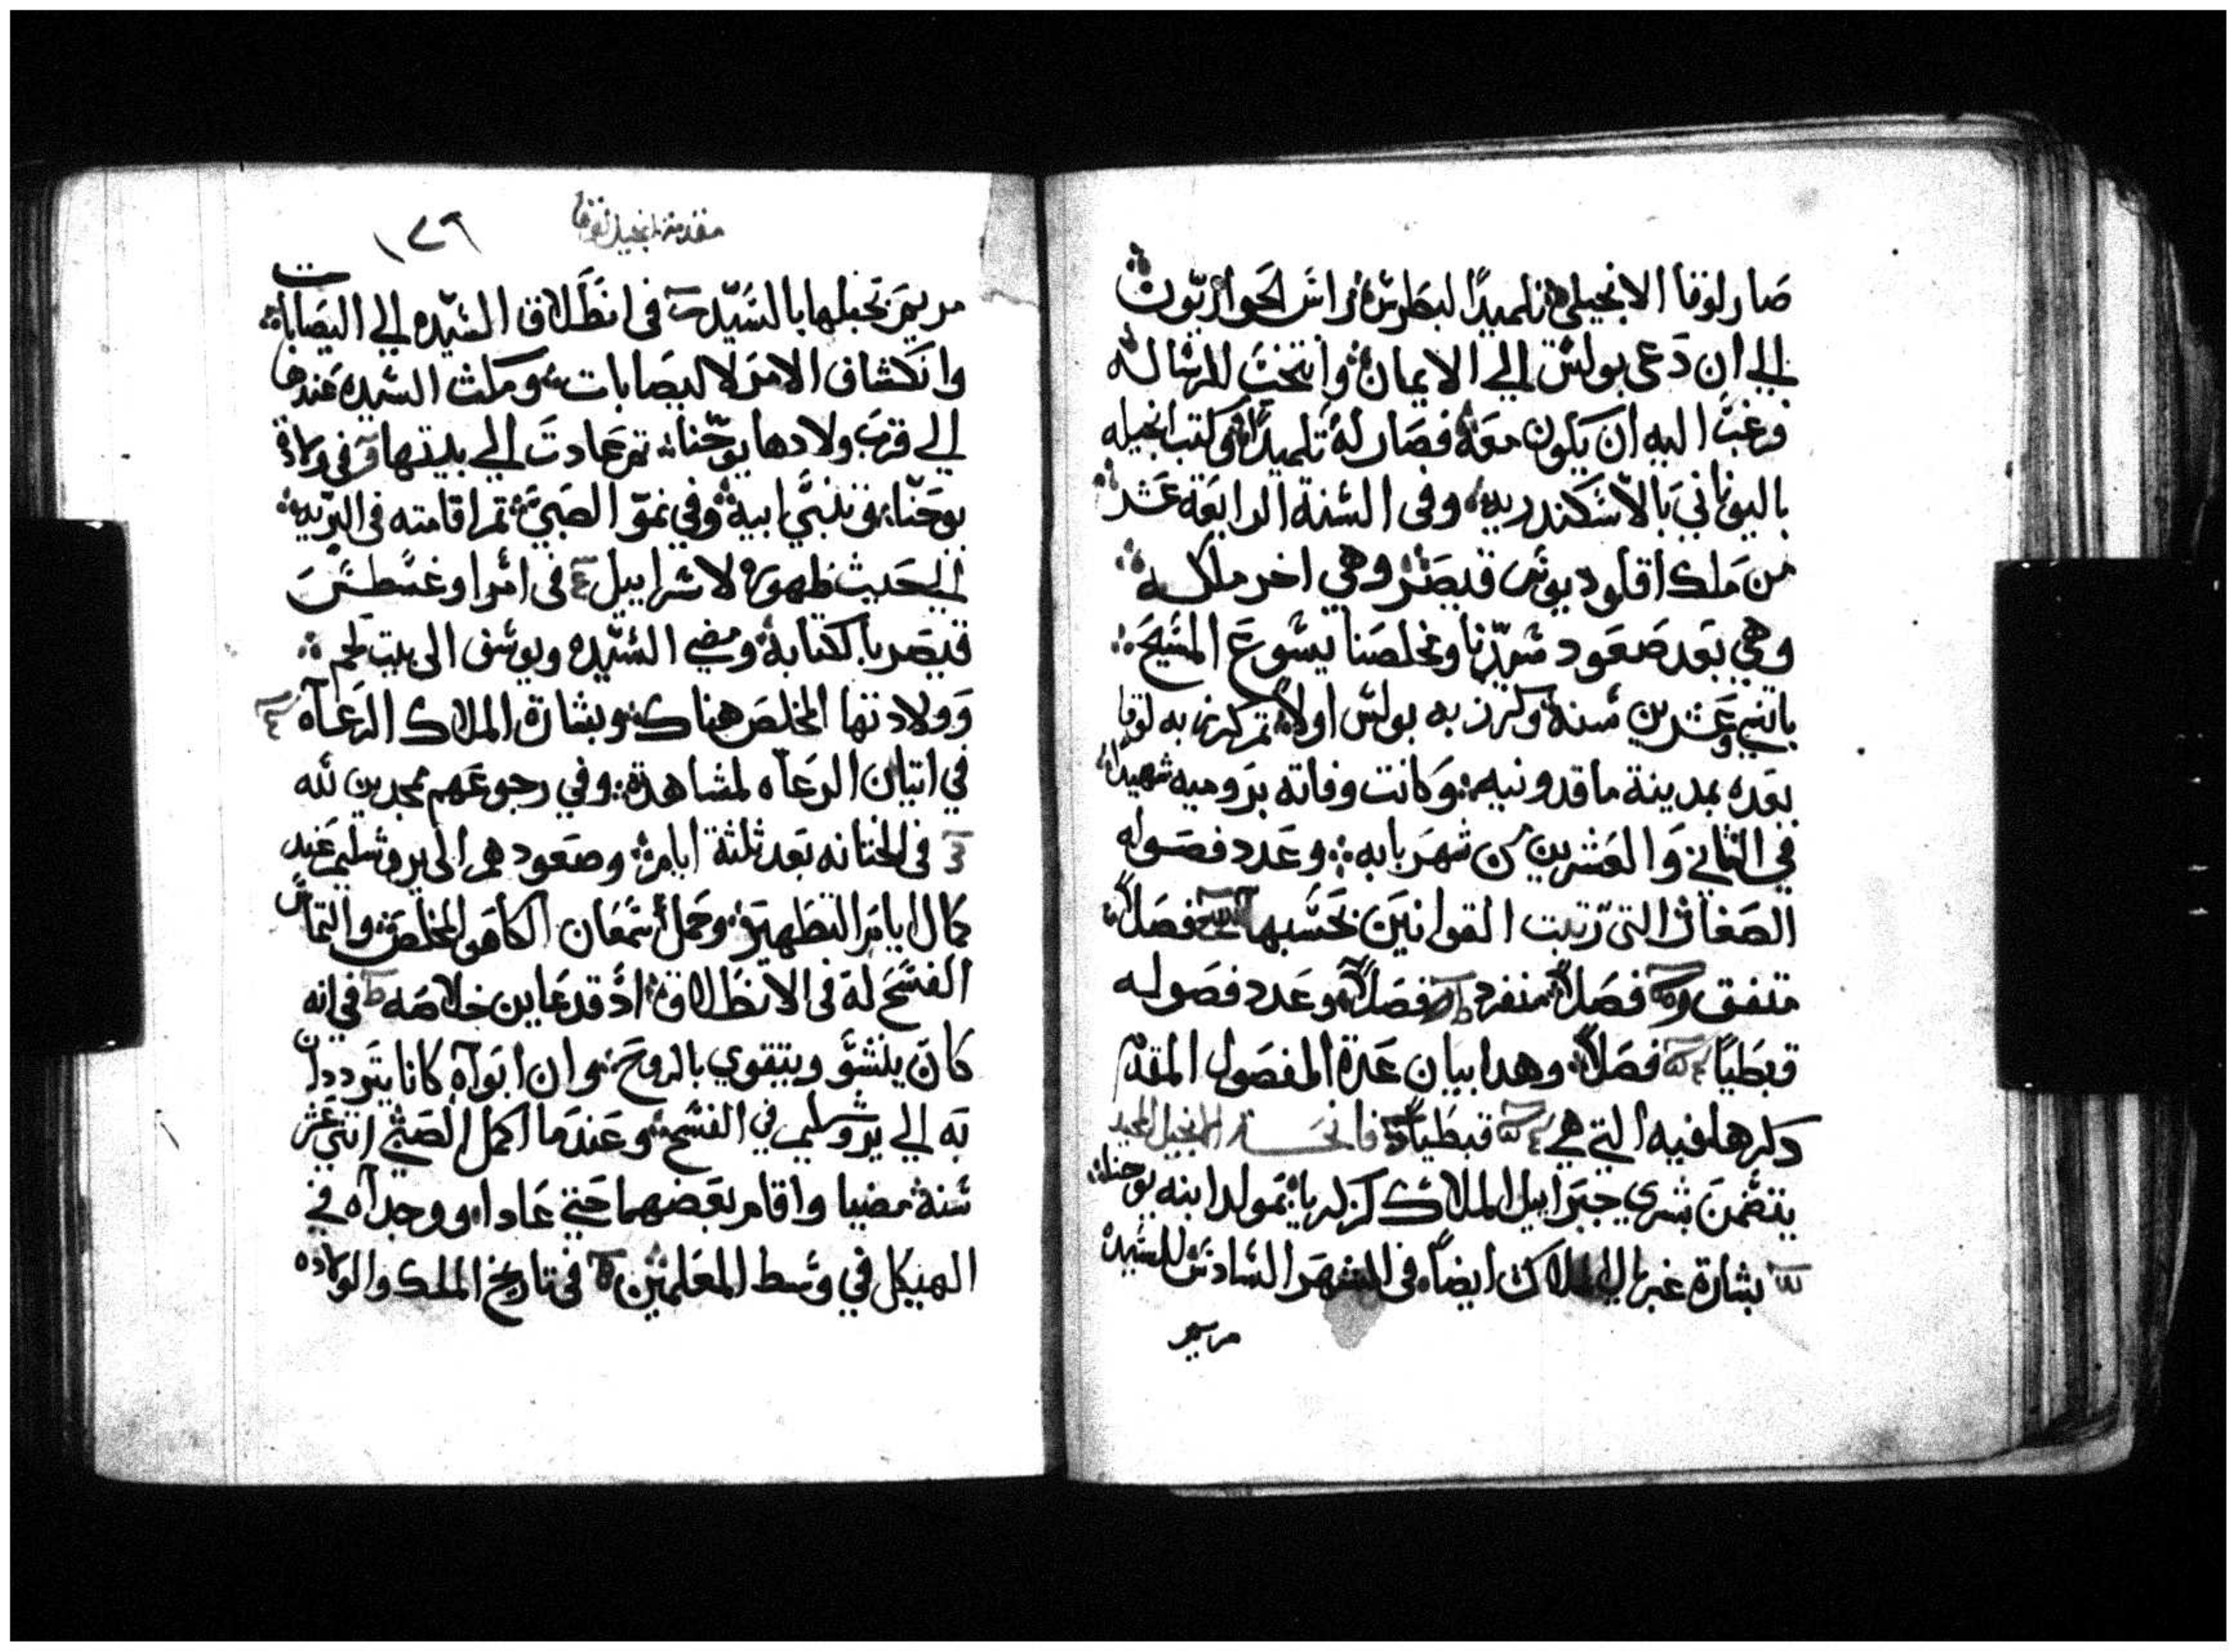 صار لوقا الانجيلي تلميدًا لبطرس راس الحواريون
الي ان دعى بولس الي الايمان وانتخب للرساله
فرغب اليه ان يكون معه فصار له تلميدًا وكتب انجيله
باليوناني بالاسكندريه وفى السنة الرابعة عشر
من ملك اقلوديوس قيصر وهي اخر ملكه
وهي بعد صعود سيدنا ومخلصنا يسوع المسيح
باتني وعشرين سنه وكرز به بولس اولا تم كرز به لوقا
بعده بمدينة ماقدونيه وكانت وفاته بروميه شهيدا
في الثاني والعشرين من شهر بابه وعدد فصوله
الصغار التى رتبت القوانين بحسبها فصلا
متفق فصلا منفرد فصلا وعدد فصوله
قبطيًا فصلا وهدا بيان عدة الفصول المقدم
دكرها فيه التي هي قبطيا فاتحة الانجيل المجيد
يتضمن بشري جبراييل الملاك لزكريا بمولد ابنه يوحنا
بشارة غبريال الملاك ايضا فى الشهر السادس للسيده
مريم
مقدمة انجيل لوقا
١٧٦
مريم بحبلها بالسيد فى انطلاق السيده الي اليصابات
وانكشاف الامر لاليصابات ومكث السيده عندها
الي قرب ولادها يوحنا تم عادت الي بيتها فى ولادة
يوحنا وتنبي ابيه وفي نمو الصبي تم اقامته فى البريه
الي حيث ظهوره لاسراييل فى امر اوغسطس
قيصر بالكتابة ومضي السيده ويوسف الى بيت لحم
وولادتها المخلص هناك وبشارة الملاك الرعاه
في اتيان الرعاه لمشاهدة وفي رجوعهم ممجدين لله
فى الختانه بعد ثلثة ايام وصعودهم الى يروشليم عند
كمال ايام التطهير وحمل سمعان الكاهن المخلص والتماس
الفسح له فى الانطلاق اد قد عاين خلاصه في انه
كان ينشؤ ويتقوي بالروح وان ابواه كانا يترددان
به الي يروشليم في الفسح وعندما اكمل الصبي اتني عشر
سنة مضيا واقام بعضهما حتي عادا ووجداه في
الهيكل في وسط المعلمين فى تاريخ الملك والولاده